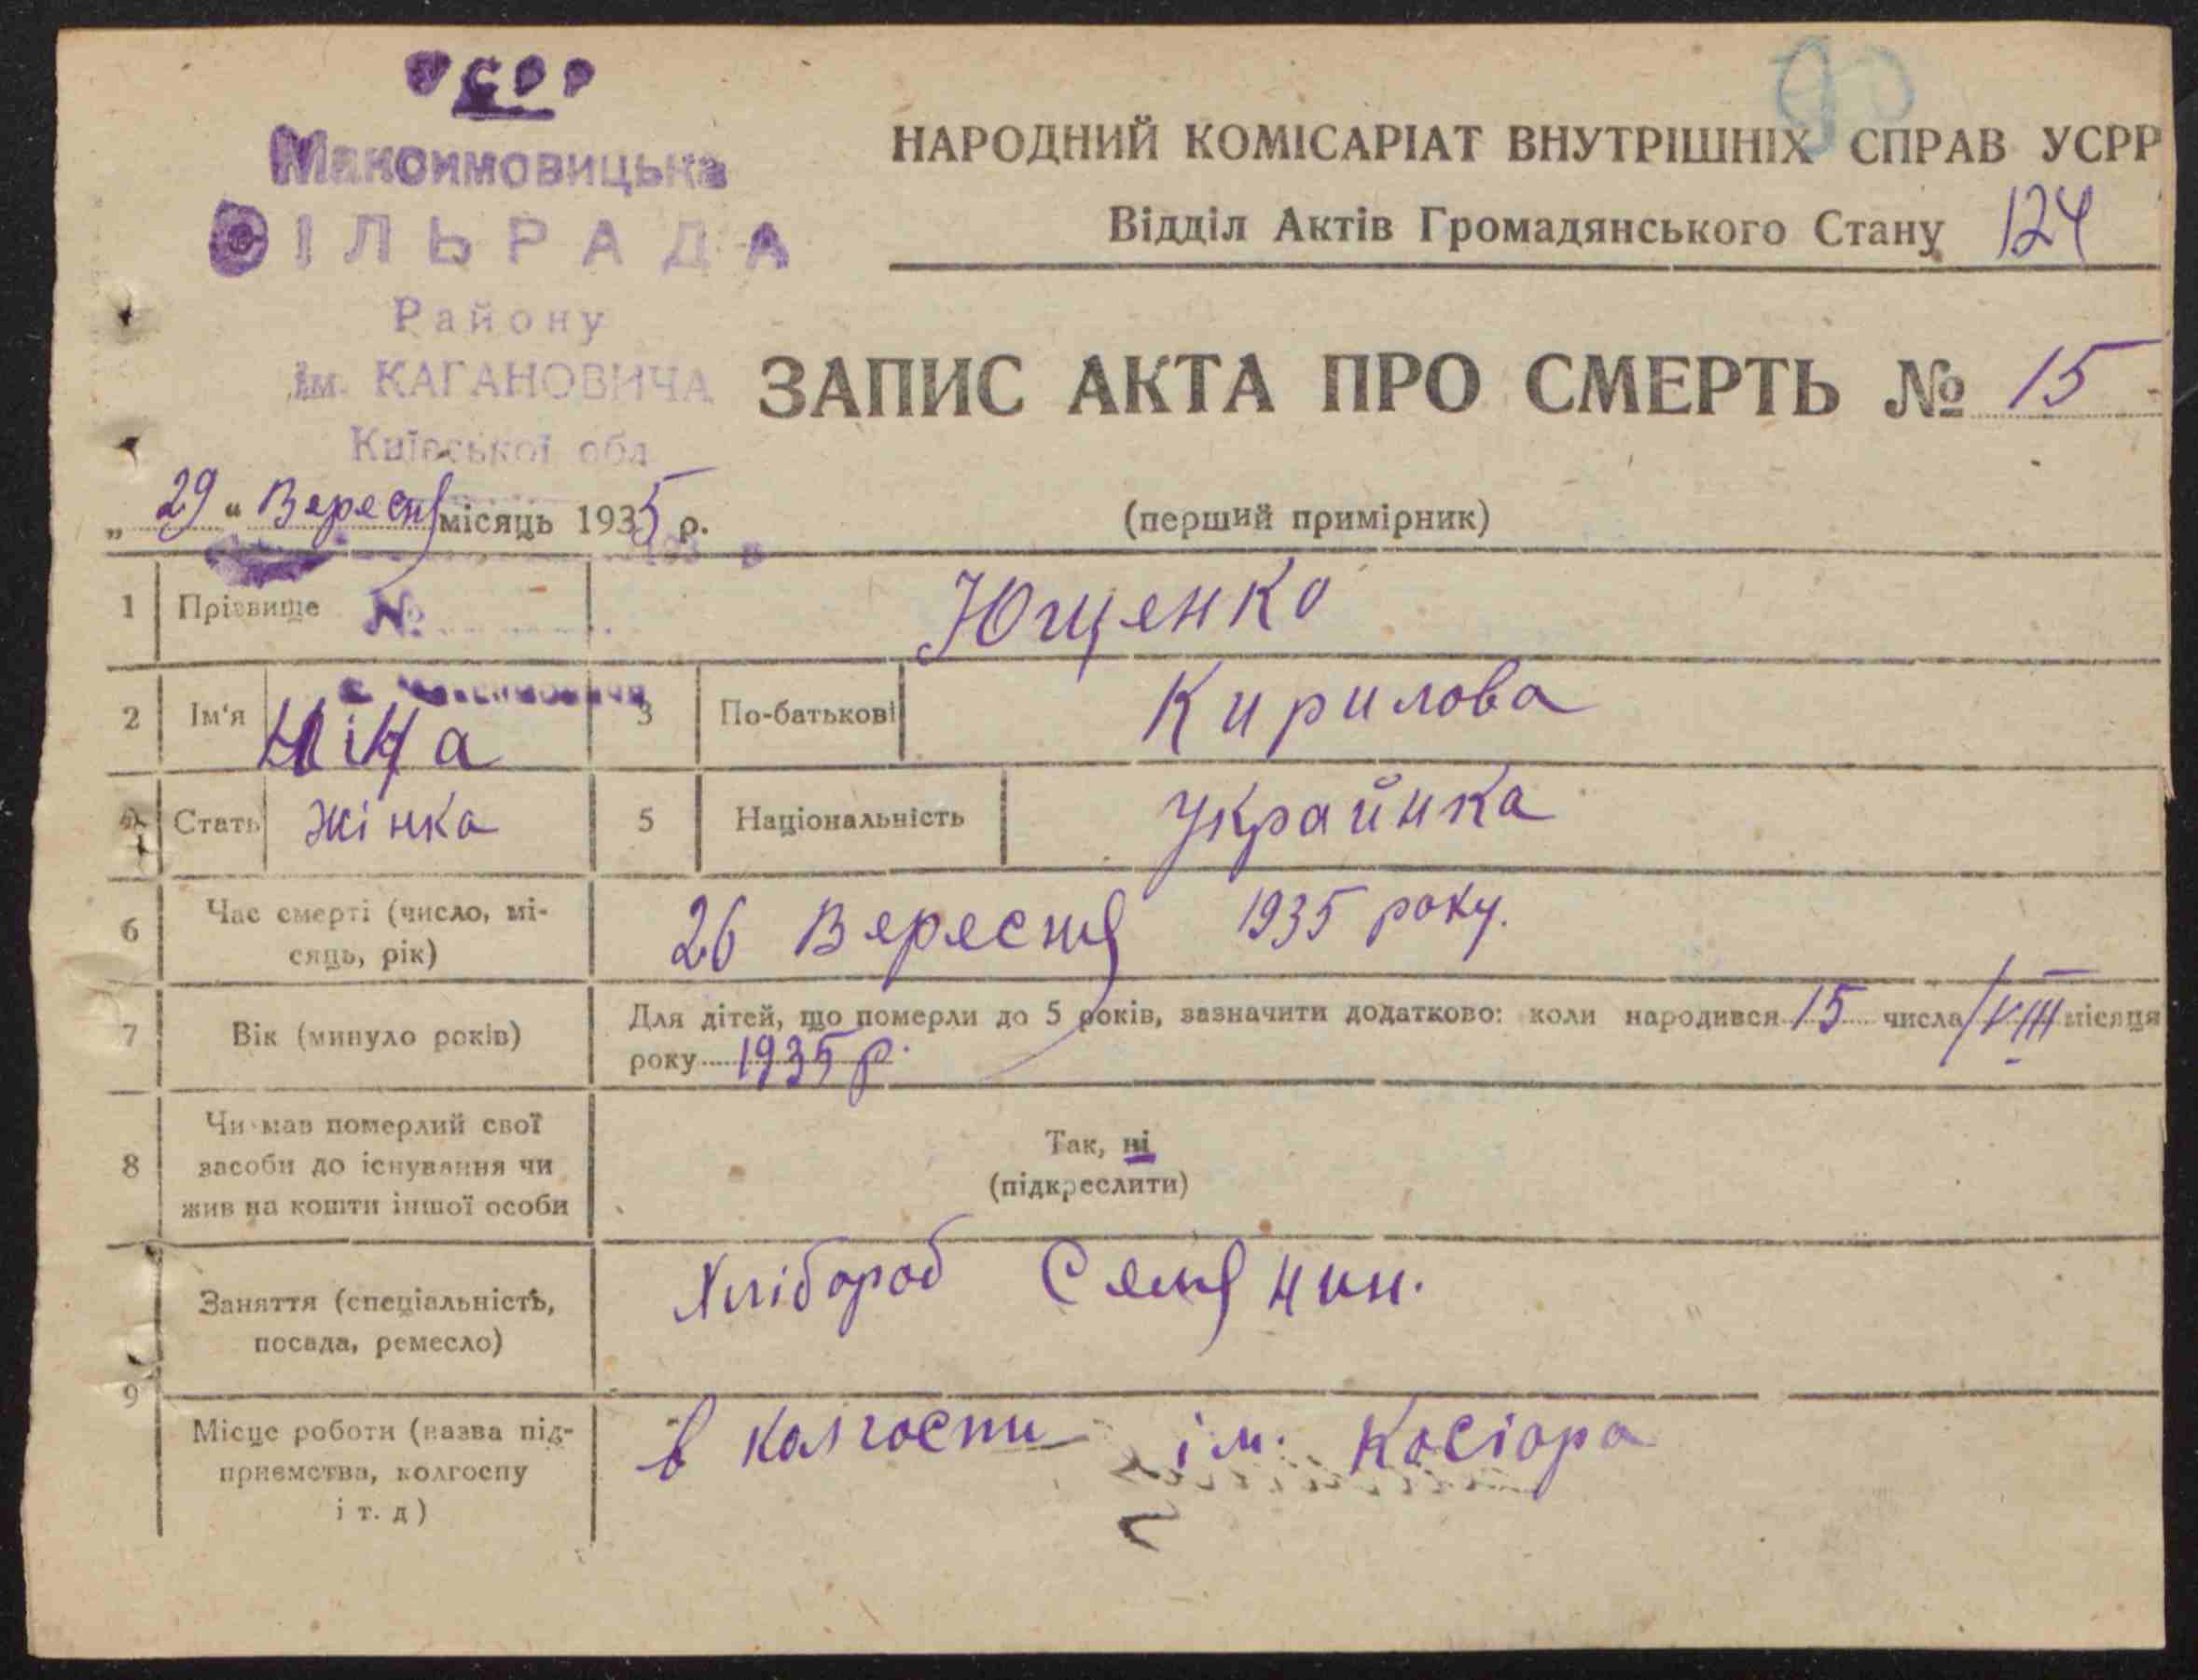 УСРР
Максимовицька
СІЛЬРАДА
Району
ім. КАГАНОВИЧА
Київської обл
НАРОДНИЙ КОМІСАРІАТ ВНУТРІШНІХ СПРАВ УСРР
Відділ Актів Громадянського Стану 124
ЗАПИС АКТА ПРО СМЕРТЬ № 15
„ 29 “ Вересня місяць 1935 р.
(перший примірник)
1 Прізвище № Ющенко
2 Ім'я Ніна 3 По-батькові Кирилова
4 Стать Жінка 5 Національність Українка
6 Час смерті (число, мі-
сяць, рік) 26 Вересня 1935 року.
7 Вік (минуло років) Для дітей, що померли до 5 років, зазначити додатково: коли народився 15 числа VIII місяця
року 1935 р.
8 Чи мав померлий свої
засоби до існування чи
жив на кошти іншої особи
Так, ні
(підкреслити)
9 Заняття (спеціальність,
посада, ремесло) Хлібороб Селянин.
Місце роботи (назва під-
приємства, колгоспу
і т. д) в колгоспи ім. Косіора